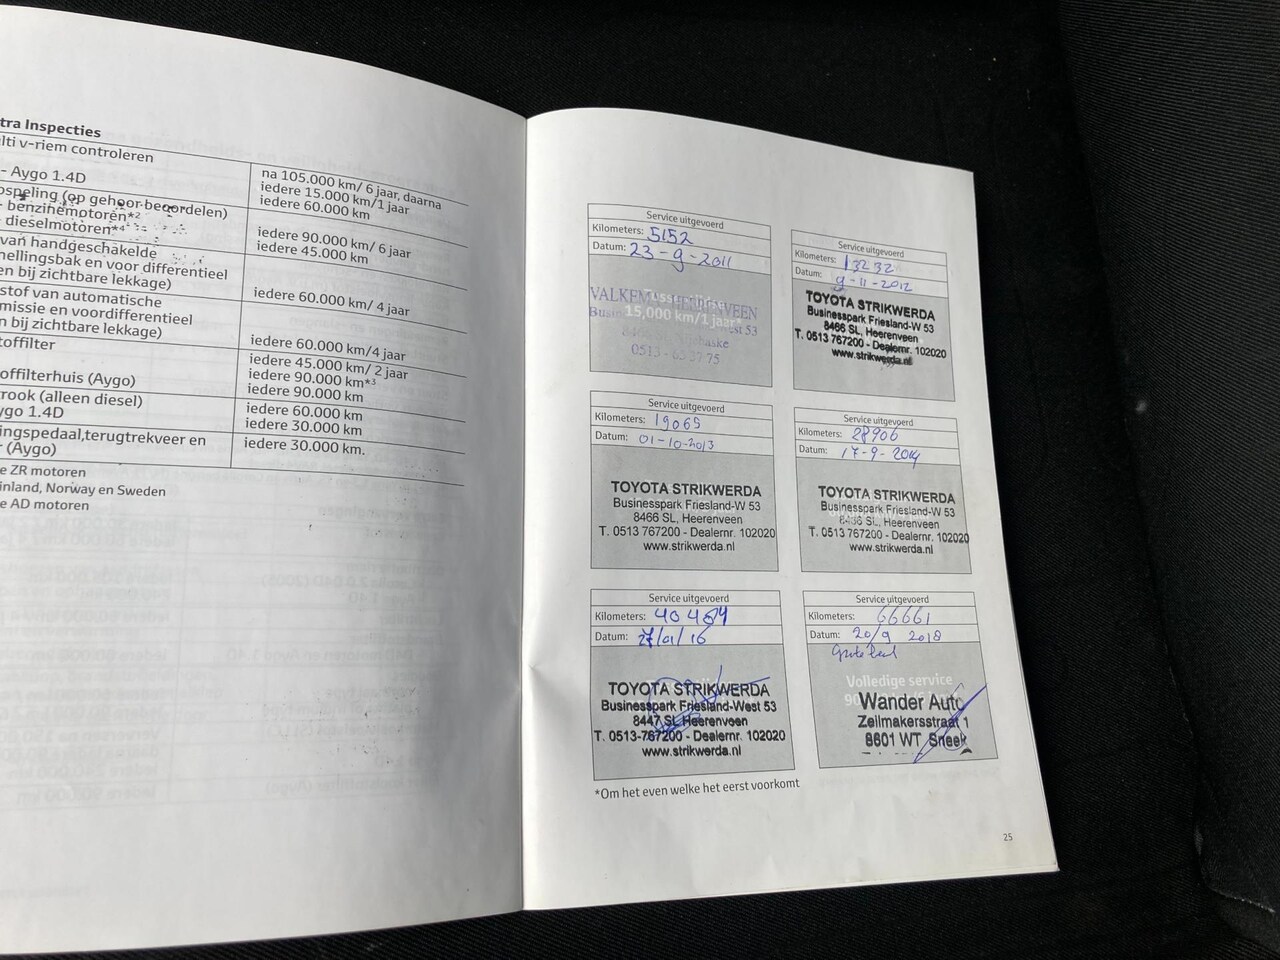 tra Inspecties
lti v-riem controleren
- Aygo 1.4D
na 105.000 km/ 6 jaar, daarna
iedere 15.000 km/1 jaar
iedere 60.000 km
ospeling (op gehoor beoordelen)
- benzinemotoren*2
- dieselmotoren*4
iedere 90.000 km/ 6 jaar
iedere 45.000 km
van handgeschakelde
nellingsbak en voor differentieel
en bij zichtbare lekkage)
iedere 60.000 km/ 4 jaar
stof van automatische
missie en voordifferentieel
en bij zichtbare lekkage)
iedere 60.000 km/4 jaar
toffilter
iedere 45.000 km/ 2 jaar
iedere 90.000 km*3
offilterhuis (Aygo)
iedere 90.000 km
trook (alleen diesel)
ygo 1.4D
iedere 60.000 km
iedere 30.000 km
ingspedaal,terugtrekveer en
r (Aygo)
iedere 30.000 km.
e ZR motoren
inland, Norway en Sweden
e AD motoren
Service uitgevoerd
Kilometers: 5152
Datum: 23-9-2011
VALKEM HEERENVEEN
15,000 km/1 jaar*
Busin est 53
0513 - 63 37 75
Service uitgevoerd
Kilometers: 13232
Datum: 9-11-2012
TOYOTA STRIKWERDA
Businesspark Friesland-W 53
8466 SL, Heerenveen
T. 0513 767200 - Dealernr. 102020
www.strikwerda.nl
Service uitgevoerd
Kilometers: 19065
Datum: 01-10-2013
TOYOTA STRIKWERDA
Businesspark Friesland-W 53
8466 SL, Heerenveen
T. 0513 767200 - Dealernr. 102020
www.strikwerda.nl
Service uitgevoerd
Kilometers: 28906
Datum: 17-9-2014
TOYOTA STRIKWERDA
Businesspark Friesland-W 53
8466 SL, Heerenveen
T. 0513 767200 - Dealernr. 102020
www.strikwerda.nl
Service uitgevoerd
Kilometers: 40484
Datum: 27/01/16
TOYOTA STRIKWERDA
Businesspark Friesland-West 53
8447 SL Heerenveen
T. 0513-767200 - Dealernr. 102020
www.strikwerda.nl
Service uitgevoerd
Kilometers: 66661
Datum: 20/9 2018
Volledige service
Wander Auto
Zeilmakersstraat 1
8601 WT Sneek
*Om het even welke het eerst voorkomt
25